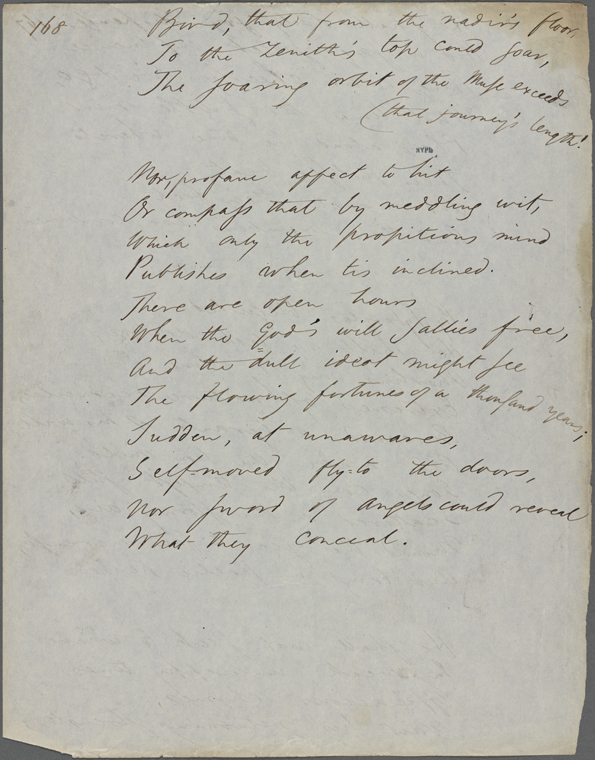 168
Bird, that from the nadir's floor,
To the Zenith's top could soar,
The soaring orbit of the Muse exceeds
(that journey's length!
NYPL
Nor, profane affect to hit
Or compass that by meddling wit,
Which only the propitious mind
Publishes when tis inclined.
There are open hours
When the God's will sallies free,
And the dull ideot might see
The flowing fortunes of a thousand years;
Sudden, at unawares,
Self-moved fly-to the doors,
Nor sword of angels could reveal
What they conceal.